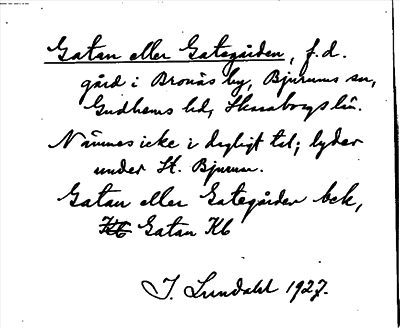 Gatan eller Gategården, f.d.
gård i Bronäs by, Bjurums sn,
Gudhems hd, Skaraborgs län.
Nämnes icke i dagligt tal; lyder
under St. Bjurum.
Gatan eller Gategården bek,
Gatan Kb
J. Lundahl 1927.